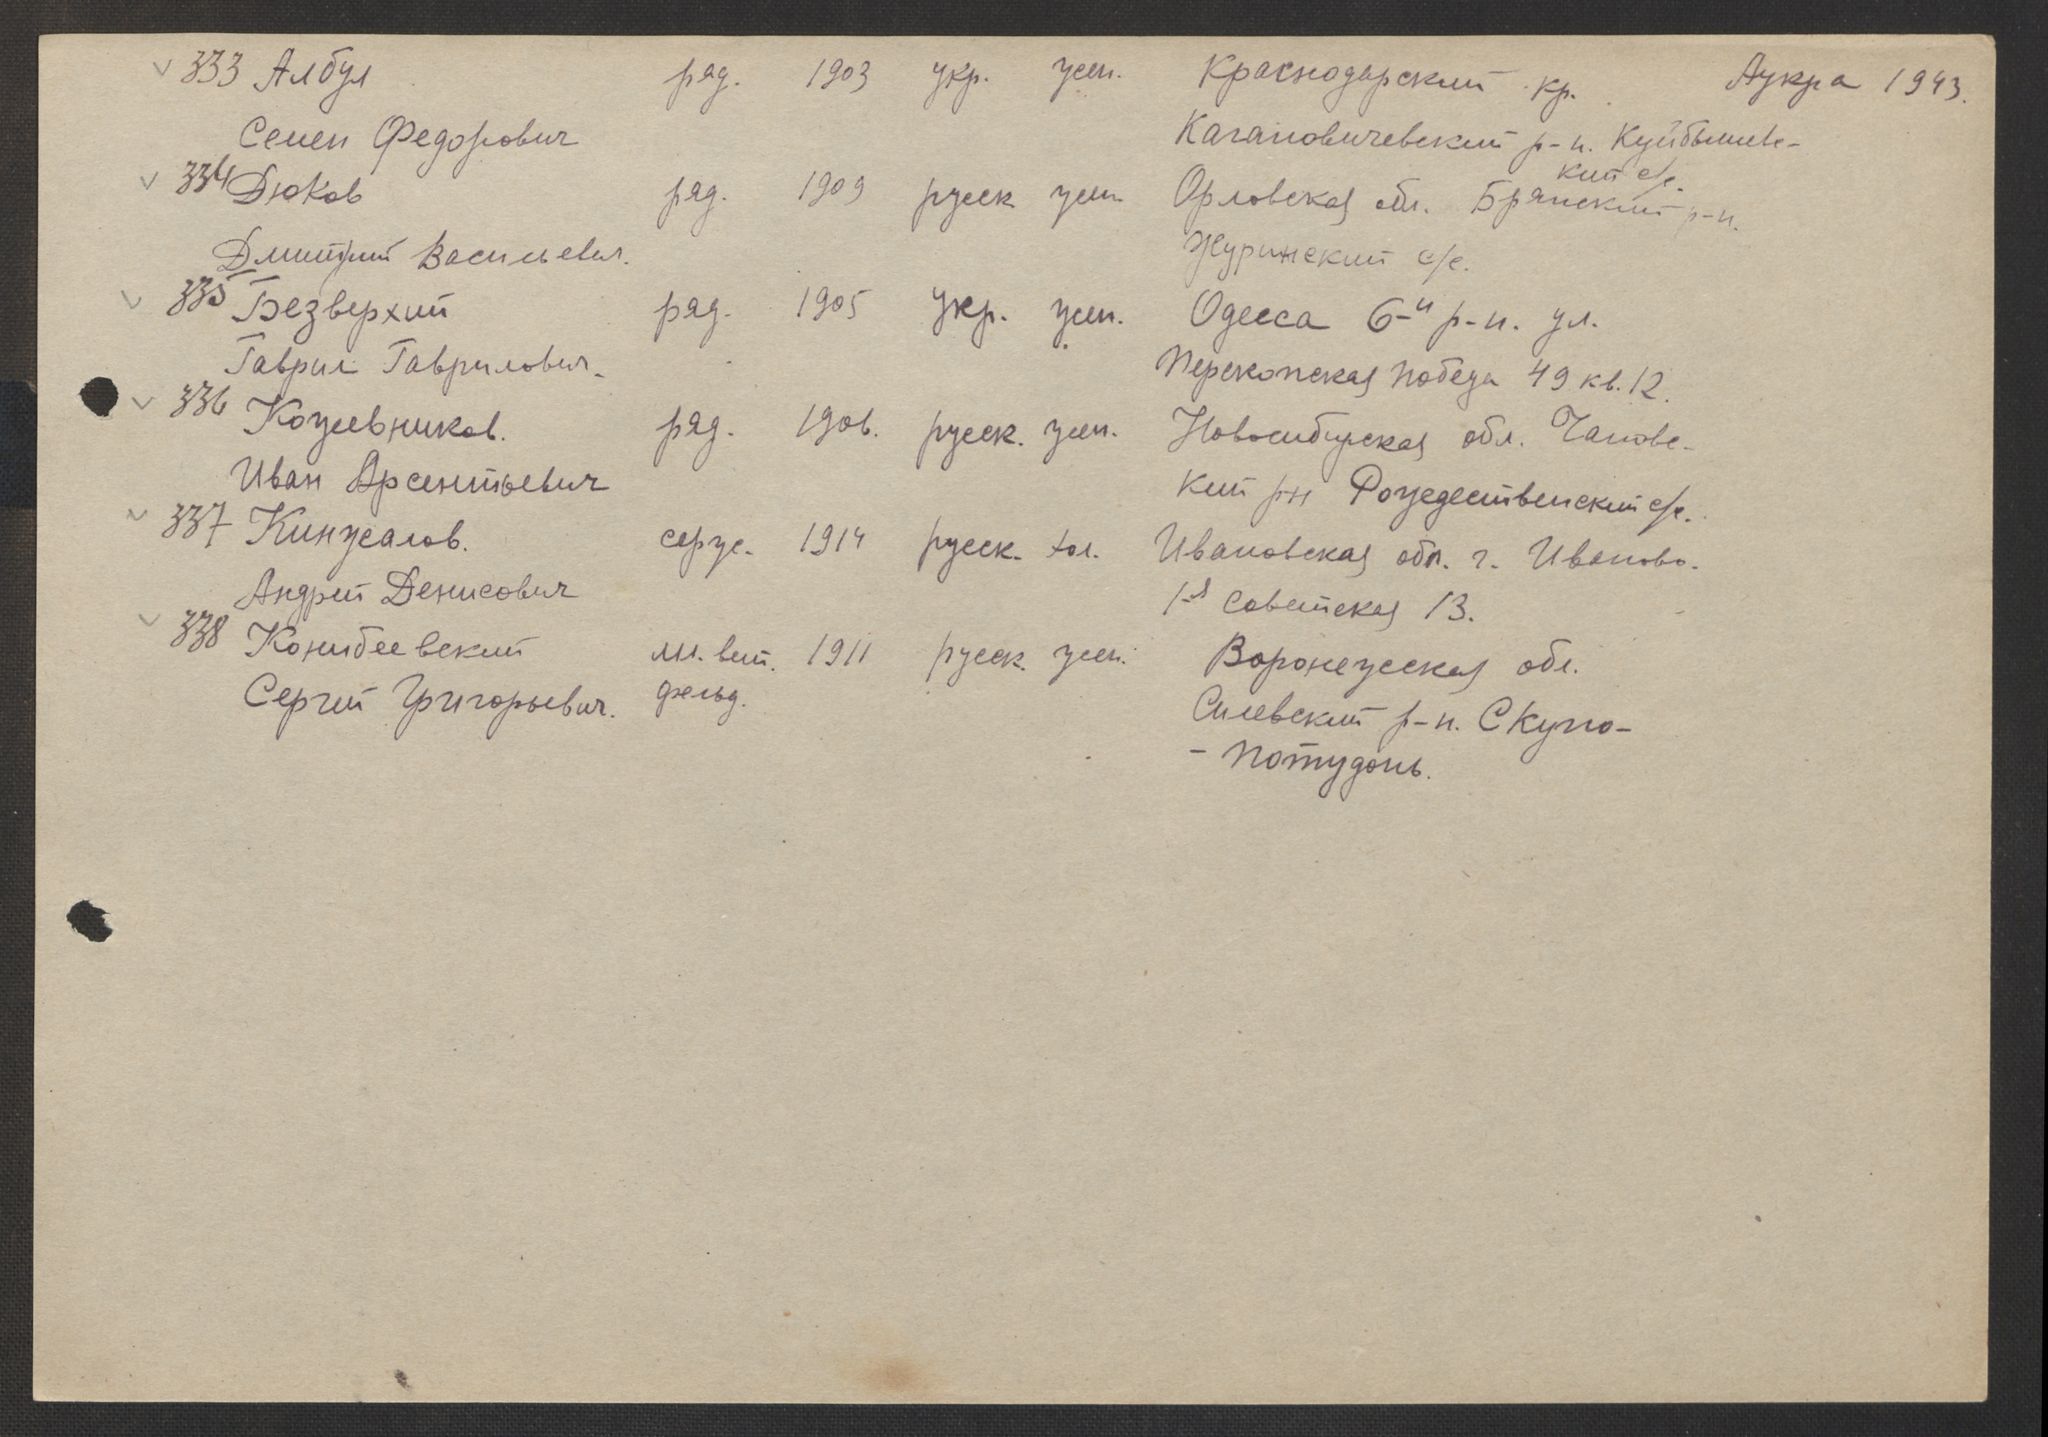 333 Албул ряд. 1903 укр. жен. Краснодарский кр. Аукра 1943.
Семен Федорович Кагановичевский р-н. Куйбышевс-
кий с/с.
334 Дюков ряд. 1909 русск жен. Орловская обл. Брянский р-н.
Дмитрий Васильевич. Журинский с/с.
335 Безверхий ряд. 1905 укр. жен. Одесса 6-й р-н. ул.
Гаврил Гаврилович. Перекопская победа 49 кв. 12.
336 Кожевников. ряд. 1906. русск. жен. Новосибирская обл. Чановс-
Иван Арсентьевич кий рн Рождественский с/с.
337 Кинжалов. серж. 1914 русск. хол. Ивановская обл. г. Иваново.
Андрей Денисович 1-я Советская 13.
338 Конибеевский мл. вет. 1911 русск. жен. Воронежская обл.
Сергей Григорьевич. фельд. р-н. Скупо-
- Потудонь.